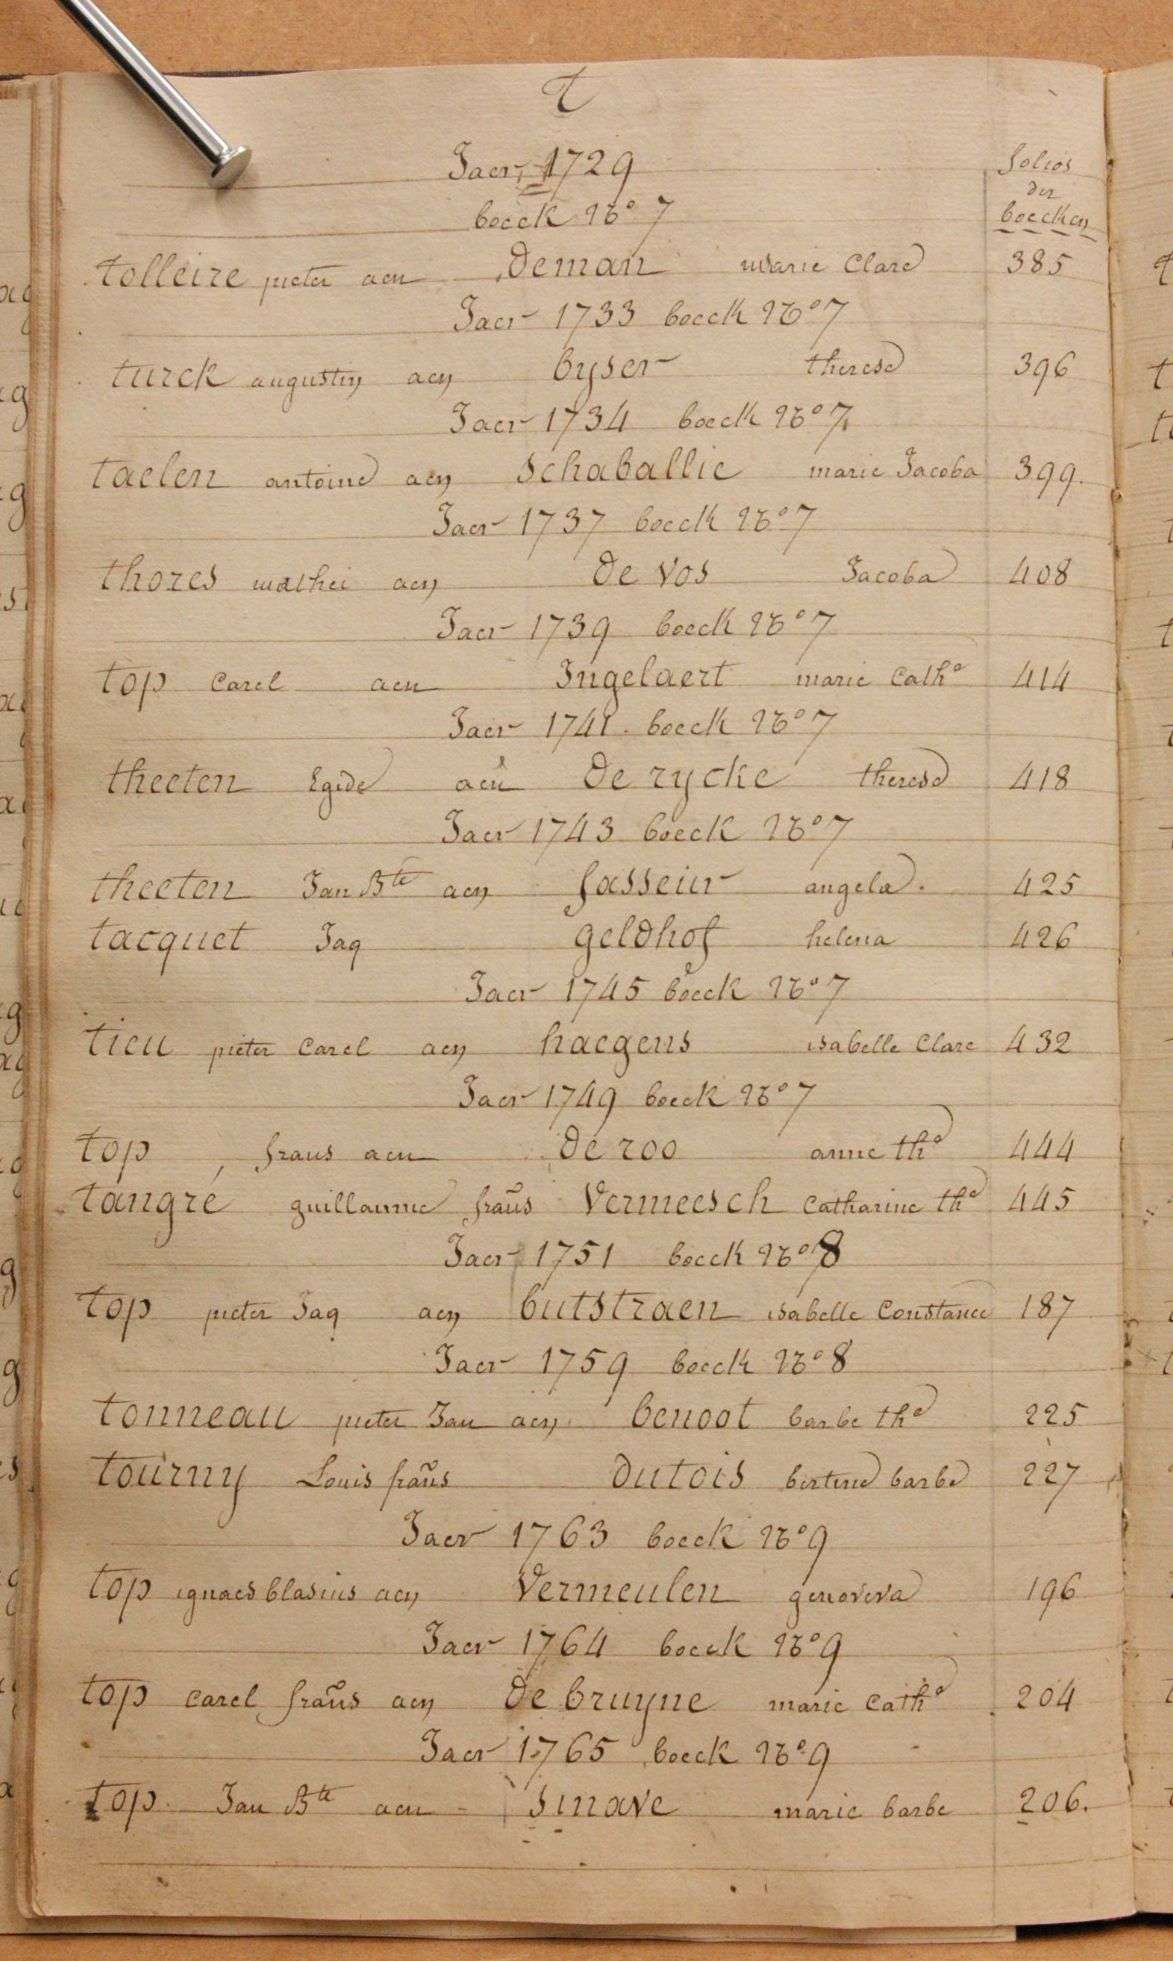 t
Jaer 1729
folios
der
boecken
boeck No 7
tolleire pieter aen Deman marie Clare 385
Jaer 1733 boeck No 7
turck augustin aen byser therese 396
Jaer 1734 boeck No 7
taelen antoine aen Schaballie marie Jacoba 399.
Jaer 1737 boeck No 7
thores mathei aen De Vos Jacoba 408
Jaer 1739 boeck No 7
top Carel aen Ingelaert marie Catha 414
Jaer 1741. boeck No 7
theeten Egide aen De rycke therese 418
Jaer 1743 boeck No 7
theeten Jan Bte aen fasseur angela. 425
tacquet Jaq geldhof helena 426
Jaer 1745 boeck No 7
tieu pieter Carel aen haegens isabelle Clare 432
Jaer 1749 boeck No 7
top frans aen De roo anne the 444
tangré guillaume frans Vermeesch Catharine the 445
Jaer 1751 boeck No 8
top pieter Jaq aen butstraen isabelle Constance 187
Jaer 1759 boeck No 8
tonneau pieter Jan aen benoot barbe the 225
tourny Louis frans Dutois bertine barbe 227
Jaer 1763 boeck No 9
top ignaes blasius aen Vermeulen genoveva 196
Jaer 1764 boeck No 9
top Carel frans aen De bruyne marie Cathe 204
Jaer 1765 boeck No 9
top Jan Bte aen Sinave marie barbe 206.